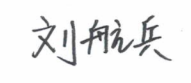 刘航兵